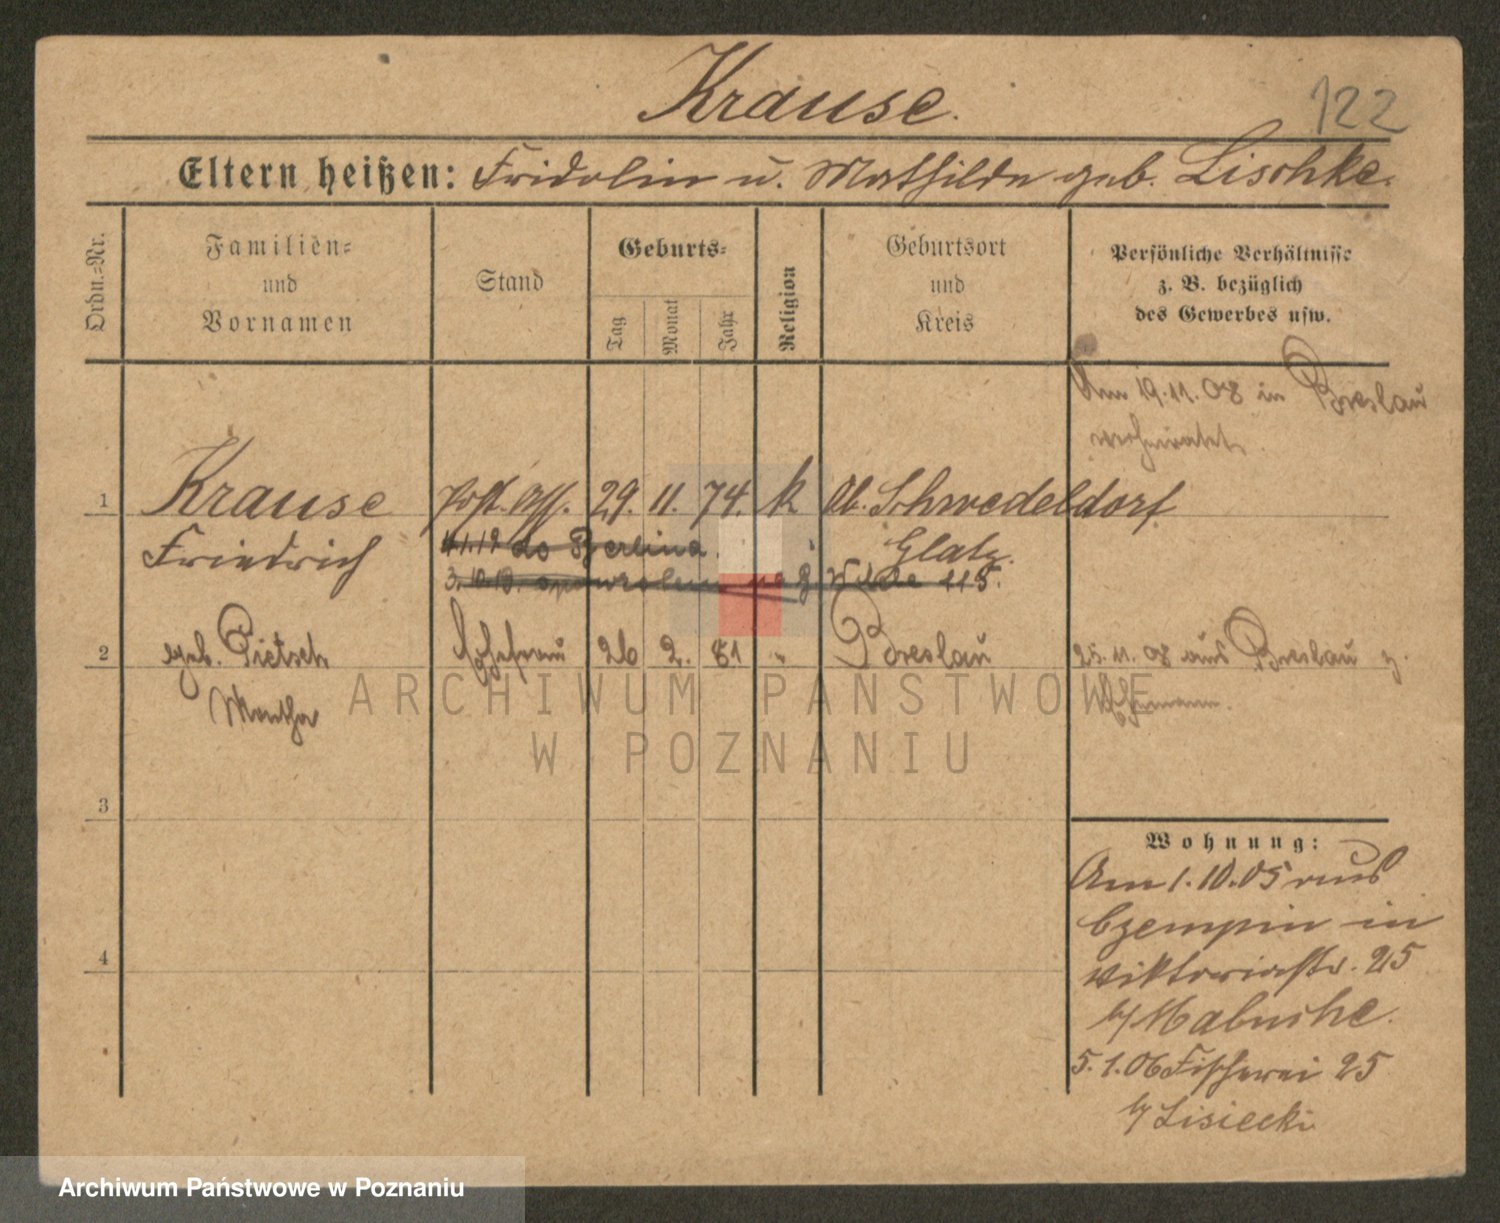 Krause.
122
Eltern heißen: Fridolin u. Mathilde geb. Lischke.
Ordn.=Nr.
Familien=
und
Vornamen
Stand
Geburts=
Tag
Monat
Jahr
Religion
Geburtsort
und
Kreis
Persönliche Verhältnisse
z. B. bezüglich
des Gewerbes usw.
Am 19.11.08 in Breslau
verheiratet.
1 Krause Post. Ass. 29. 11. 74. k Ob. Schwedeldorf
Friedrich Glatz.
4.1.19 do Berlina.
3. 10. Wilde 115.
2 geb. Pietsch Ehefrau 26 2. 81 " Breslau
Martha
25.11.08 aus Breslau z.
Ehemann.
3
4
Wohnung:
Am 1.10.05 aus
Czempin in
Viktoriastr. 25
b/ Mabuske.
5.1.06 Fischerei 25
b/ Lisiecki
ARCHIWUM PAŃSTWOWE
W POZNANIU
Archiwum Państwowe w Poznaniu